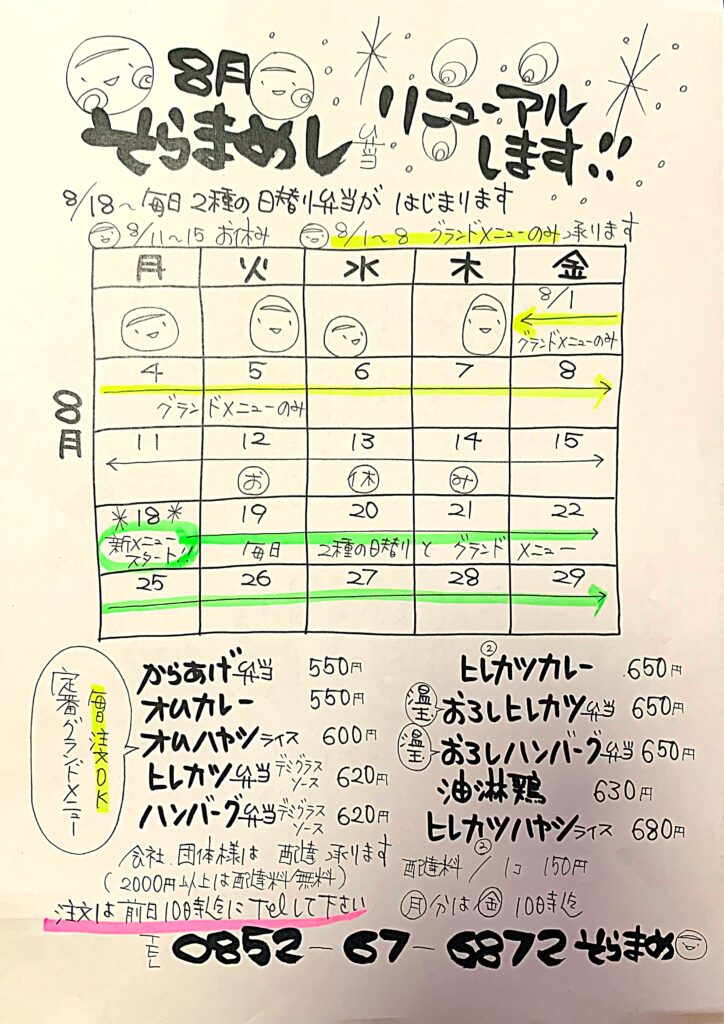 8月
そらまめし弁当
リニューアル
します!!
8/18～毎日2種の日替り弁当がはじまります
8/11～15 お休み
8/1～8 グランドメニューのみ承ります
8月
月 火 水 木 金
8/1
グランドメニューのみ
4 5 6 7 8
グランドメニューのみ
11 12 13 14 15
お 休 み
18 19 20 21 22
新メニュー
スタート!!
毎日 2種の日替りと グランド メニュー
25 26 27 28 29
毎日注文OK
定番グランドメニュー
からあげ弁当 550円
オムカレー 550円
オムハヤシライス 600円
ヒレカツ弁当 デミグラスソース 620円
ハンバーグ弁当 デミグラスソース 620円
ヒレカツカレー ② 650円
温玉 おろしヒレカツ弁当 650円
温玉 おろしハンバーグ弁当 650円
油淋鶏 630円
ヒレカツハヤシライス ② 680円
会社.団体様は 配達承ります
配達料/1コ 150円
(2000円以上は配達料/無料)
注文は前日10時迄にTelして下さい
月分は金10時迄
TEL 0852-67-6872 そらまめ